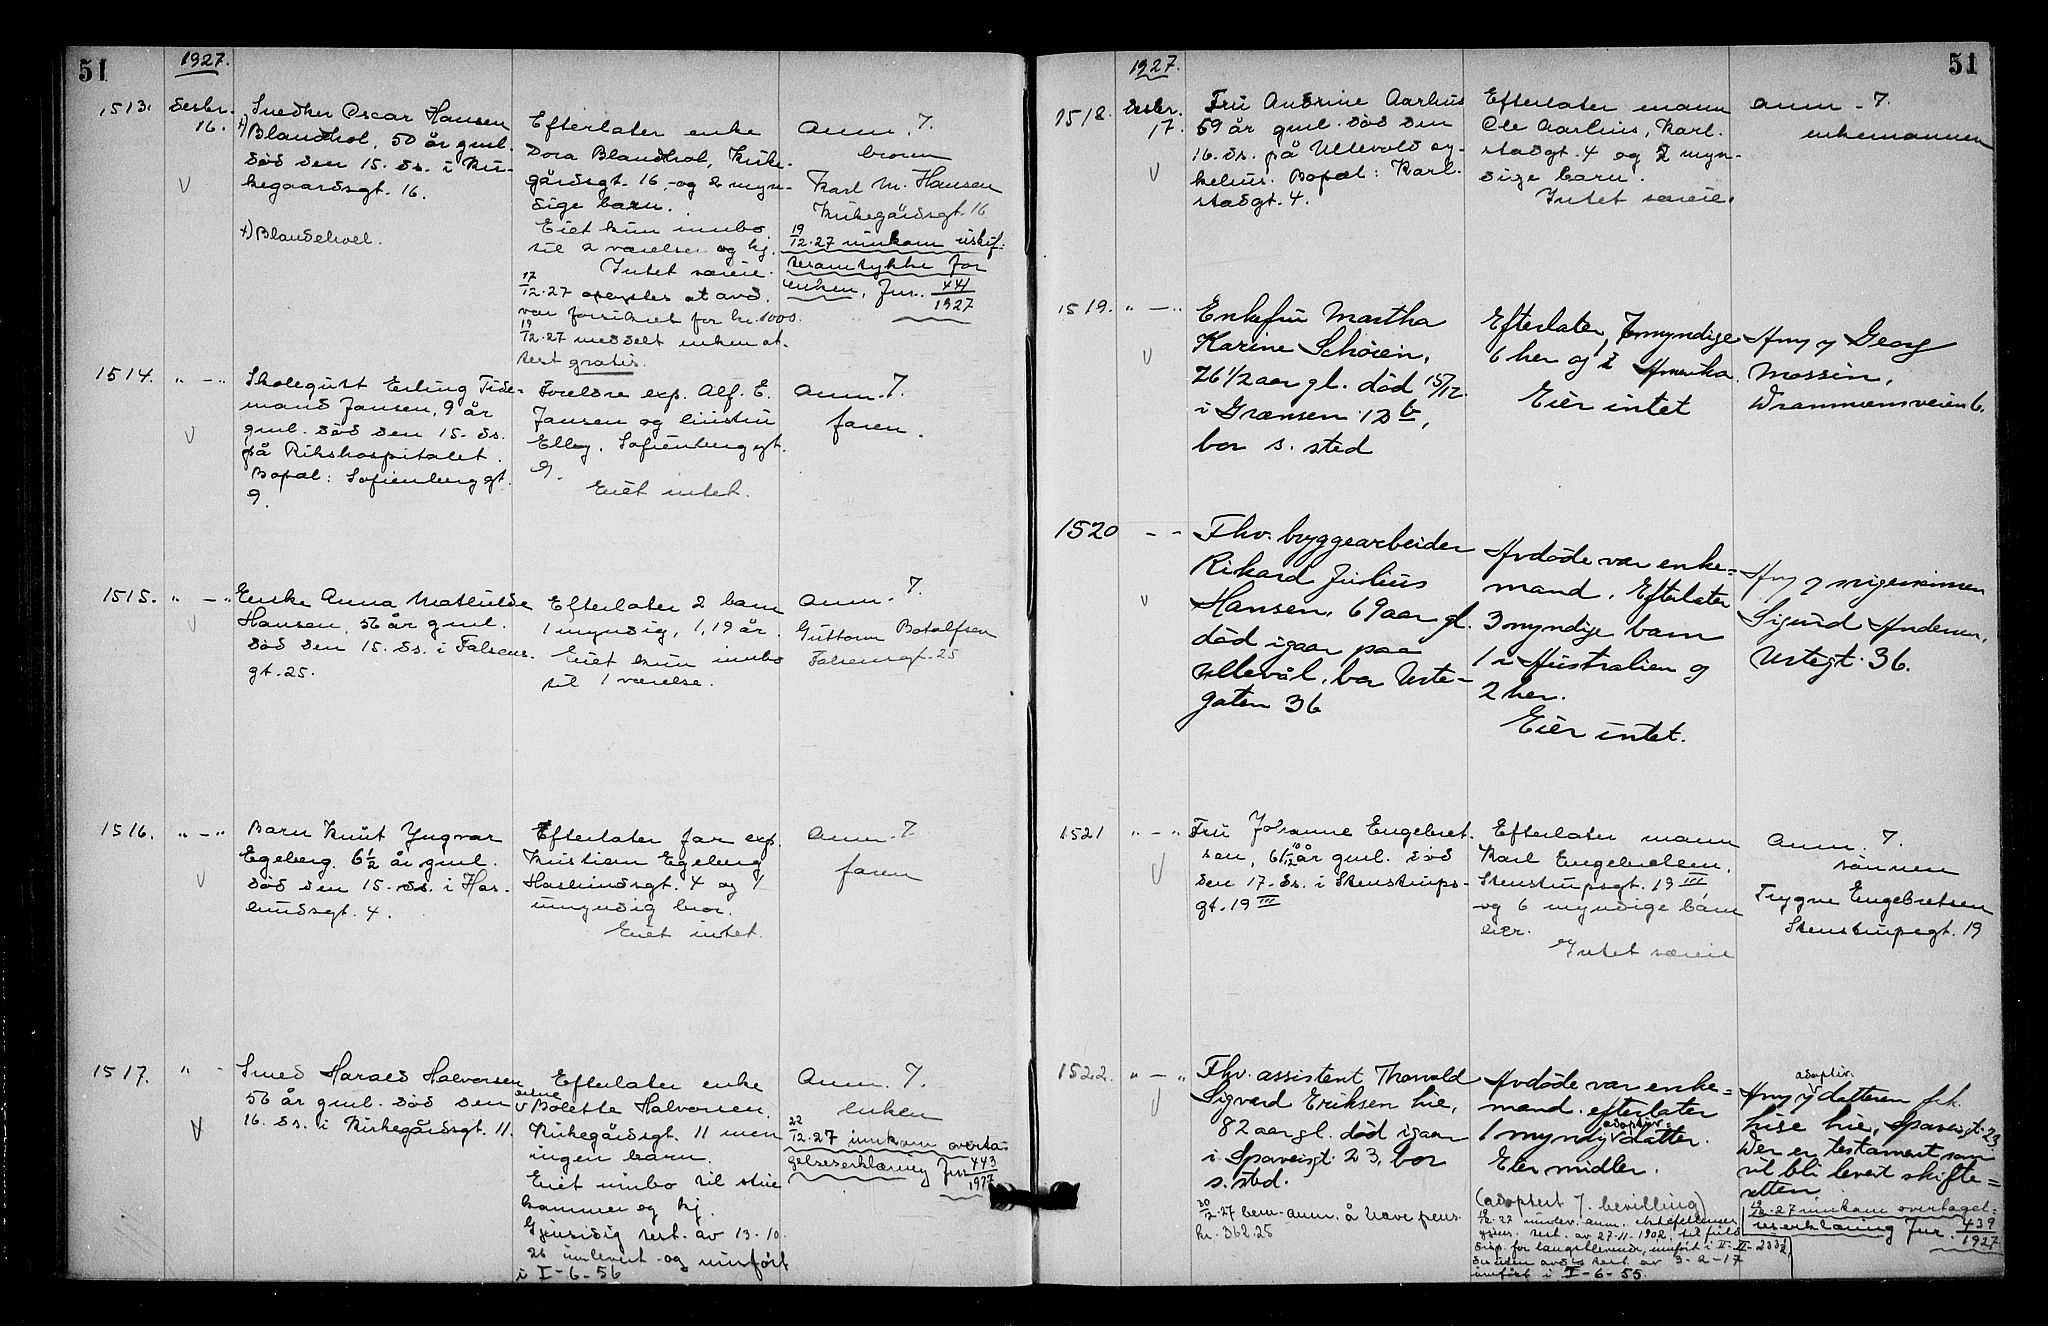 51
1927.
1513.
Desbr.
16.
Snedker Oscar Hansen
x) Blandhol, 50 år gml.
død den 15. ds. i Kir-
kegaardsgt. 16.
x) Blandehoel.
Efterlater enke
Dora Blandhol, Kirke-
gårdsgt. 16, og 2 myn-
dige barn.
Eiet kun innbo
til 2 værelser og kj.
Intet særeie.
17/12-27 oplystes at avd.
var forsikret for kr. 1000.
19/12-27 meddelt enken at-
test gratis.
Anm. 7.
broren
Karl M. Hansen
Kirkegårdsgt. 16
19/12-27 innkom uskif-
tesamtykke for
enken, Jur. 441/1927
1514.
" - "
Skolegutt Erling Tide-
mand Jansen, 9 år
gml. død den 15. ds.
på Rikshospitalet.
Bopæl: Sofienberggt.
9.
Foreldre exp. Alf. E.
Jansen og hustru
Elly, Sofienberggt.
9.
Eiet intet.
Anm. 7.
faren.
1515.
" - "
Enke Anna Mathilde
Hansen, 56 år gml.
død den 15. ds. i Falsens-
gt. 25.
Efterlater 2 barn
1 myndig, 1, 19 år.
Eiet kun innbo
til 1 værelse.
Anm. 7.
Guttorm Botolfsen
Falsensgt. 25
1516.
" - "
Barn Knut Yngvar
Egeberg, 6 1/2 år gml.
død den 15. ds. i Has-
lundsgt. 4.
Efterlater far exp.
Kristian Egeberg
Haslundsgt. 4 og 1
umyndig bror.
Eiet intet.
Anm. 7.
faren
1517.
" -
Smed Harald Halvorsen
56 år gml. død den
16. ds. i Kirkegårdsgt. 11.
Efterlater enke
Bolette Halvorsen,
Kirkegårdsgt. 11 men
ingen barn.
Eiet innbo til stue
kammer og kj.
Gjensidig test. av 13-10-
26 innlevert og innført
i I-6-56
Anm. 7.
enken
22/12-27 innkom overta-
gelseserklæring Jur. 443/1927
51
1927.
1518.
Desbr.
17.
Fru Andrine Aarhus
59 år gml. død den
16. ds. på Ullevold sy-
kehus. Bopæl: Karl-
stadgt. 4.
Efterlater mann
Ole Aarhus, Karl-
stadgt. 4 og 2 myn-
dige barn.
Intet særeie.
Anm. 7.
enkemannen
1519.
" - "
Enkefru Martha
Karine Schøien,
76 1/2 aar gl. død 15/12.
i Grænsen 12 b,
bor s. sted
Efterlater 7 myndige
6 her og 1 i Amerika.
Eier intet
Anm 7 Georg
Mossin,
Drammensveien 6.
1520
- -
Fhv. byggearbeider
Rikard Julius
Hansen, 69 aar gl.
død igaar paa
Ullevål, bor Urte-
gaten 36
Avdøde var enke=
mand. Efterlater
3 myndige barn
1 i Australien og
2 her.
Eier intet.
Anm 7 svigersønnen
Sigurd Andersen,
Urtegt. 36.
1521
" - "
Fru Johanne Engebret-
sen, 61 10/12 år gml. død
den 17. ds. i Stenstrups-
gt. 19 III
Efterlater mann
Karl Engebretsen,
Stenstrupsgt. 19 III,
og 6 myndige barn
her.
Intet særeie
Anm. 7.
sønnen
Trygve Engebretsen
Stenstrupsgt. 19
1522.
" - "
Fhv. assistent Thorvald
Sigvard Eriksen Lie,
82 aar gl. død igaar
i Spaveisgt. 23, bor
s. sted.
20/12-27 bem. anm. å have pens.
kr. 362.25
Avdøde var enke=
mand. efterlater
1 myndig adoptiv. datter.
Eier midler.
(adoptert 7. bevilling)
19/12-27 underv. anm.
test. av 27-11-1902, til
disp. for længstlevende, innført i II-II-233 1/2
desuten avd's test. av 3-2-17
innført i I-6-55.
Anm 7 adoptiv. datteren frk.
Lise Lie, Spaveisgt. 23
Der er testament som
vil bli levert skifte=
retten.
19/12-27 innkom overtagel-
seserklæring Jur. 439/1927